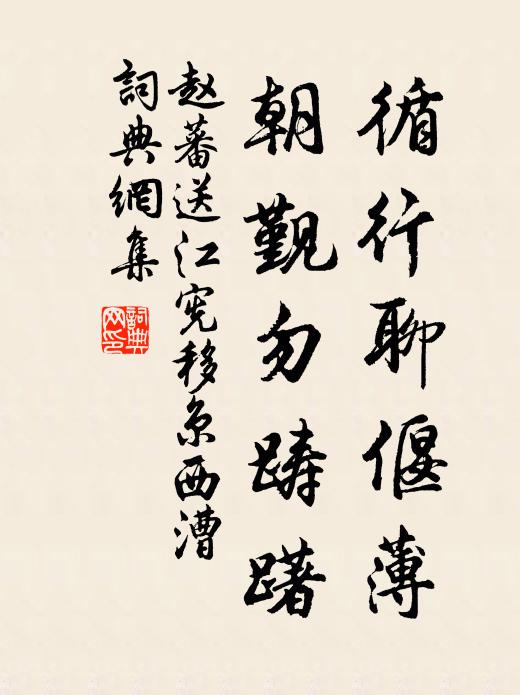 循行聊偃薄
朝觐勿踌躇
赵蕃送江宪移京西漕
詞典網集
詞典网印